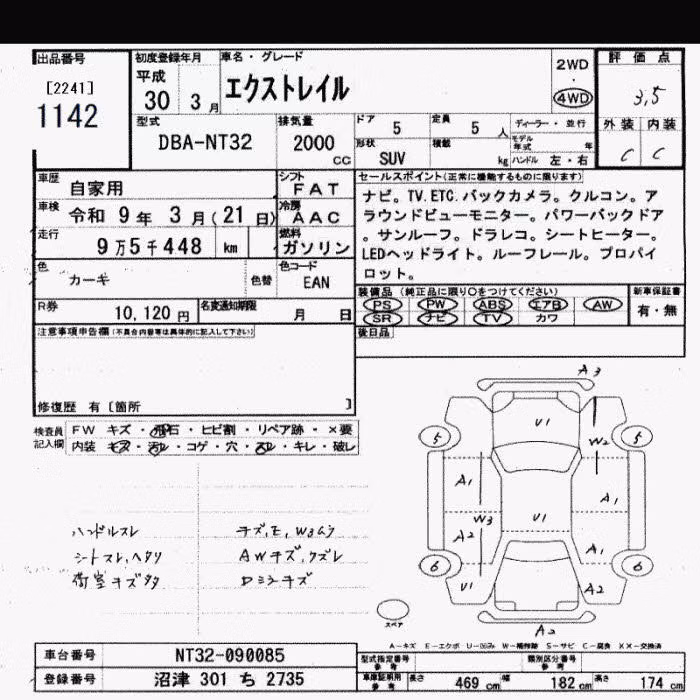 出品番号
[2241]
1142
初度登録年月
平成
30 3月
車名・グレード
エクストレイル
2WD
・
4WD
評価点
3,5
外装 内装
C C
型式
DBA-NT32
排気量
2000
cc
ドア
5
定員
5 人
形状
SUV
積載
kg
ディーラー・並行
モデル年式 年
ハンドル 左・右
車歴
自家用
シフト
FAT
車検
令和 9年 3月(21日)
冷房
AAC
走行
9万5千448 km
燃料
ガソリン
色
カーキ
色替
色コード
EAN
R券
10,120 円
名変通知期限
月 日
セールスポイント(正常に機能するものに限ります)
ナビ。TV.ETC.バックカメラ。クルコン。ア
ラウンドビューモニター。パワーバックドア
。サンルーフ。ドラレコ。シートヒーター。
LEDヘッドライト。ルーフレール。プロパイ
ロット。
装備品(純正品に限り○をつけてください)
PS PW ABS エアB AW
SR ナビ TV カワ
新車保証書
有・無
後日品
注意事項申告欄(不具合内容等は具体的に記入して下さい)
修復歴 有[箇所 ]
検査員
記入欄
FW キズ・飛石・ヒビ割・リペア跡・×要
内装 キズ・汚レ・コゲ・穴・スレ・キレ・破レ
ハンドルスレ
シートスレ、ヘタリ
荷室キズタタ
キズ,E,W3ムラ
AWキズ,クズレ
Dミラーキズ
A3
U1
5
5
W2
A1
A1
W3
U1
A2
A1
6
6
U1
A2
A2
スペア
A-キズ E-エクボ U-凹み W-補修跡 S-サビ C-腐食 XX-交換済
車台番号
NT32-090085
登録番号
沼津 301 ち 2735
型式指定番号
参考
類別区分番号
参考
車庫証明用
参考
長さ
469 cm
幅
182 cm
高さ
174 cm